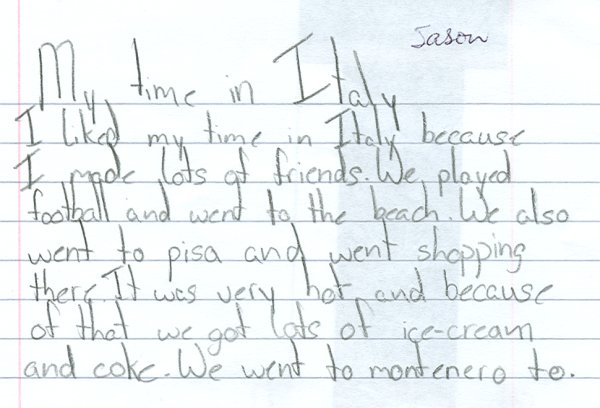 Jason
My time in Italy
I liked my time in Italy because
I made lots of friends. We played
football and went to the beach. We also
went to pisa and went shopping
there. It was very hot and because
of that we got lots of ice-cream
and coke. We went to montenero to.